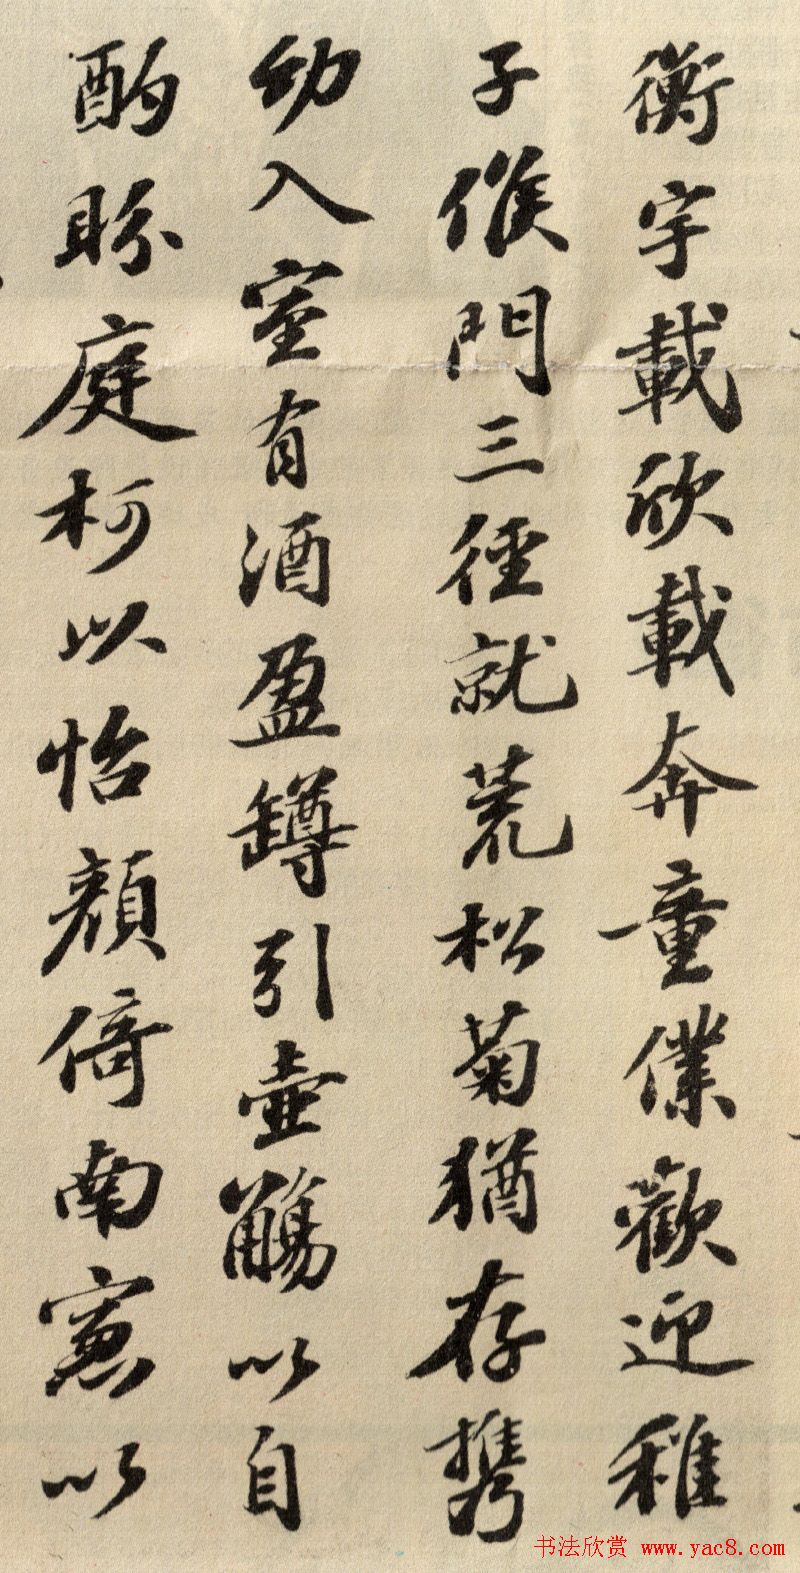 衡宇載欣載奔童僕歡迎稚
子候門三徑就荒松菊猶存攜
幼入室有酒盈罇引壺觴以自
酌眄庭柯以怡顏倚南窻以
书法欣赏 www.yac8.com